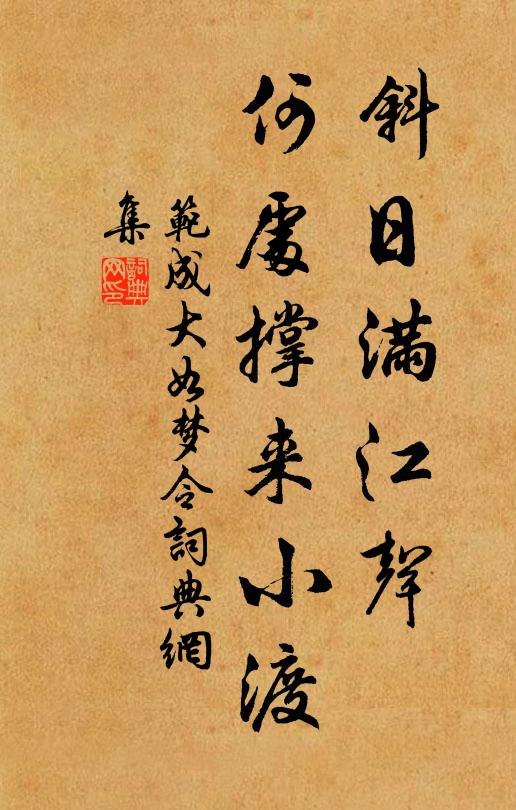 斜日满江聲
何處撐来小渡
範成大如梦令詞典網
集
詞典
网印